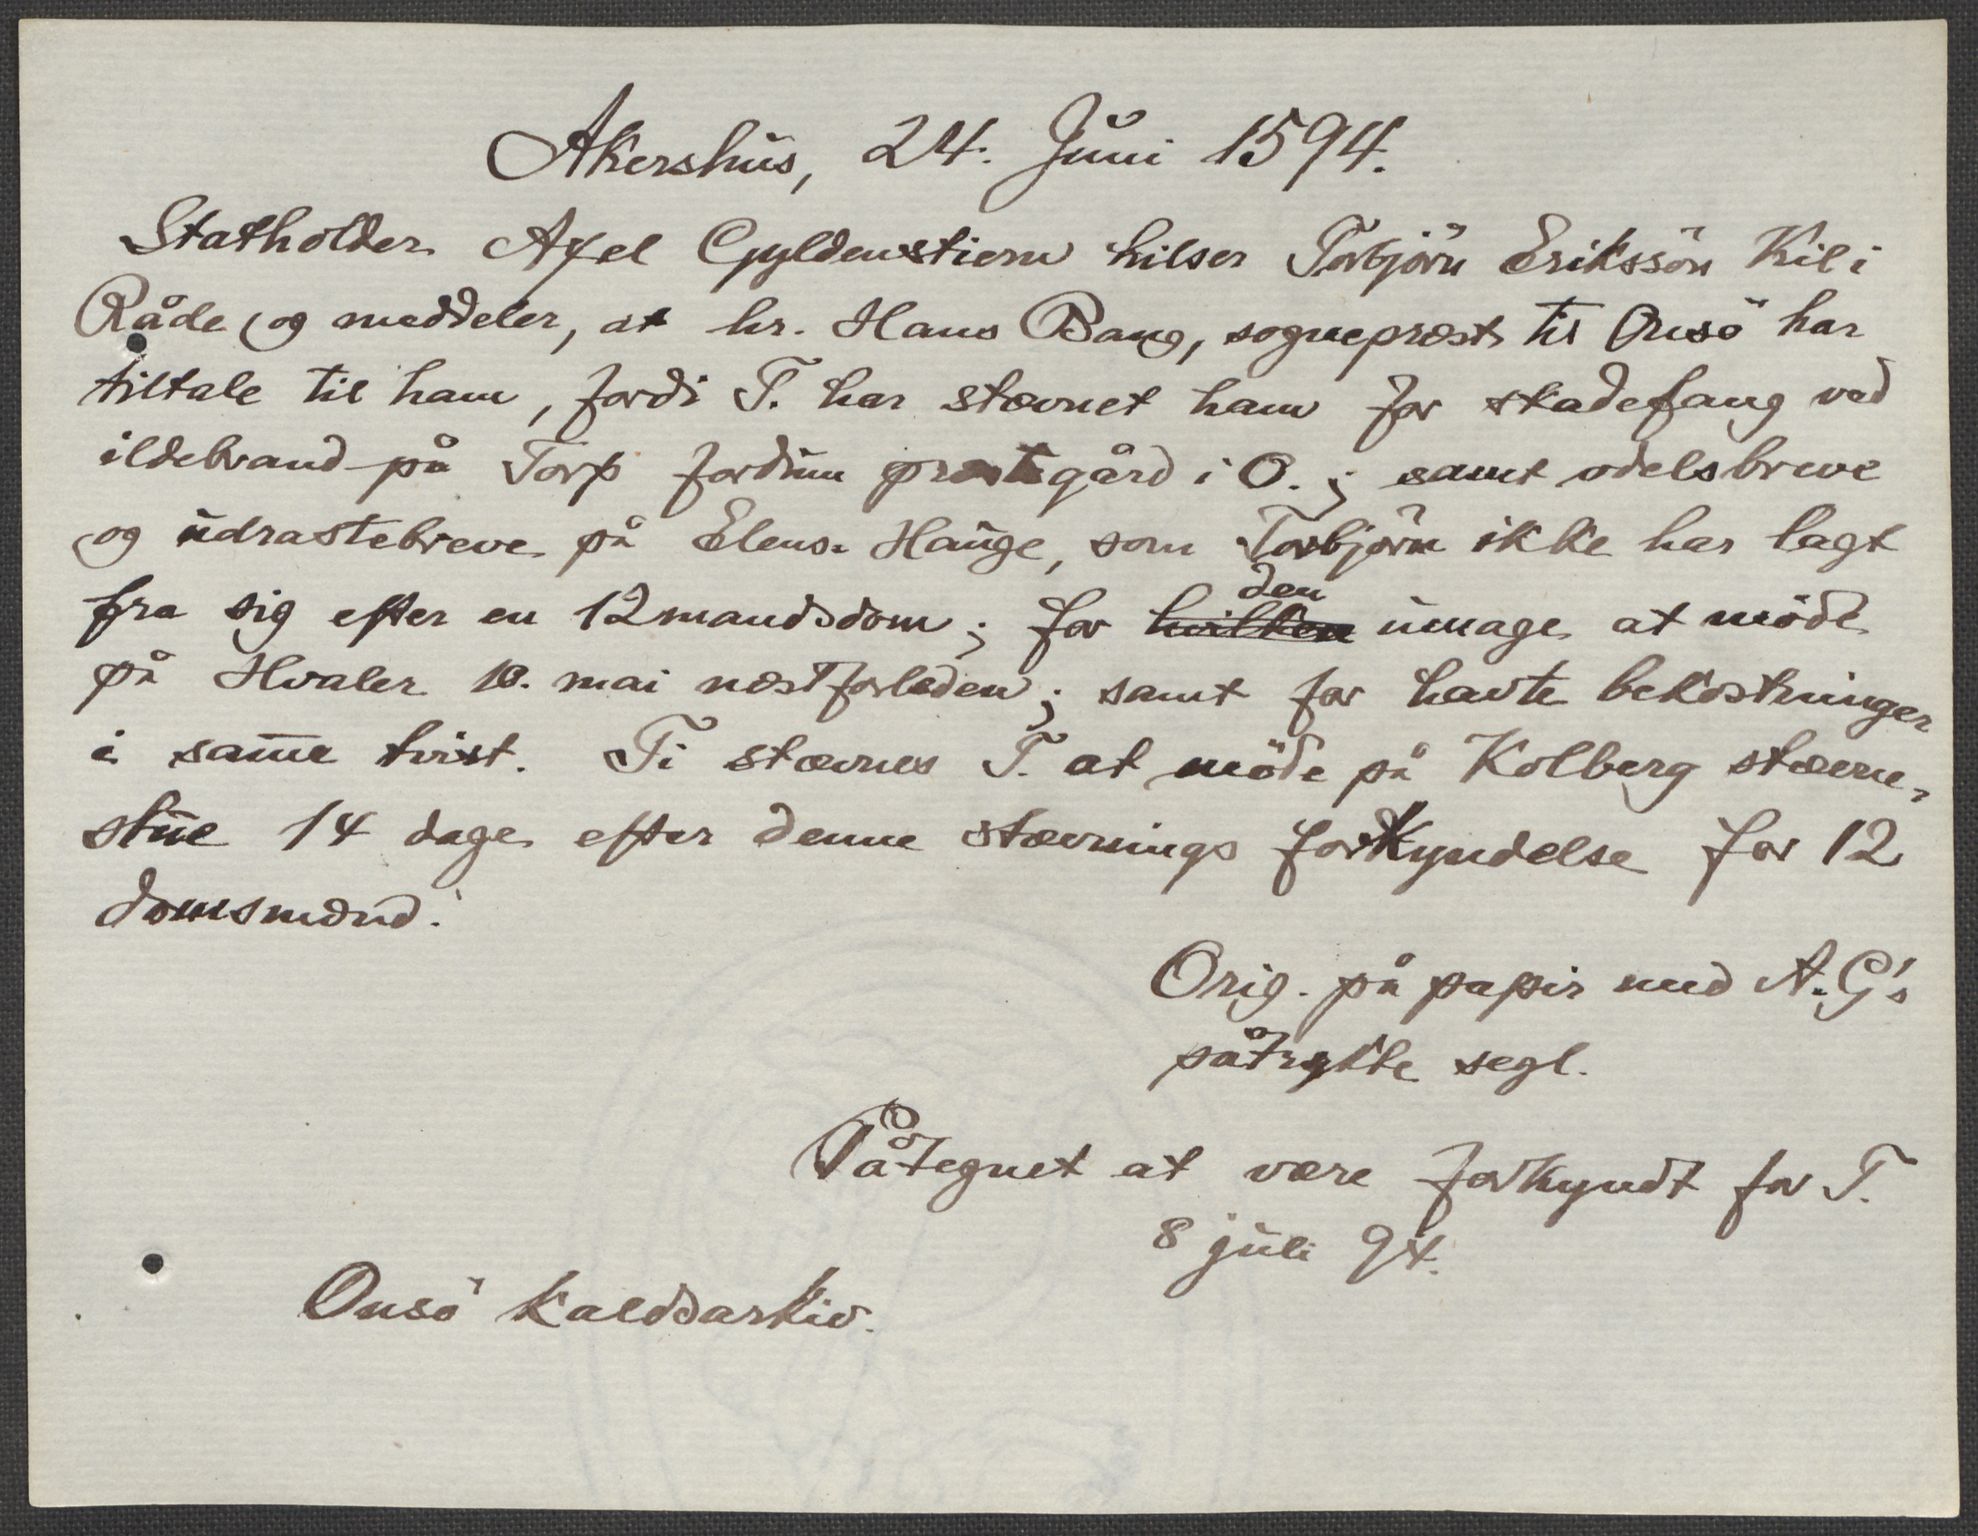 Akershus, 24. Juni 1594.
Statholder Axel Gyldenstiern hilser Torbjörn Erikssön Kil i
Råde og meddeler, at hr. Hans Bang, sogneprest til Onsö har
tiltale til ham, fordi T. har stævnet ham for skadefang ved
ildebrand på Torp fordum prestegård i O.; samt odelsbreve
og udrastebreve på Elens Hauge, som Torbjörn ikke har lagt
fra sig efter en 12mandsdom; for ~~hvilken~~ den umage at möde
på Hvaler 10. mai næstforleden; samt for havte bekostninger
i samme tvist. Ti stævnes T. at möde på Kolberg stævne-
stue 14 dage efter denne stævnings forkyndelse for 12
domsmænd.
Orig. på papir med A. G's
påtrykte segl.
Påtegnet at være forkyndt for T.
8 juli 94.
Onsö kaldsarkiv.